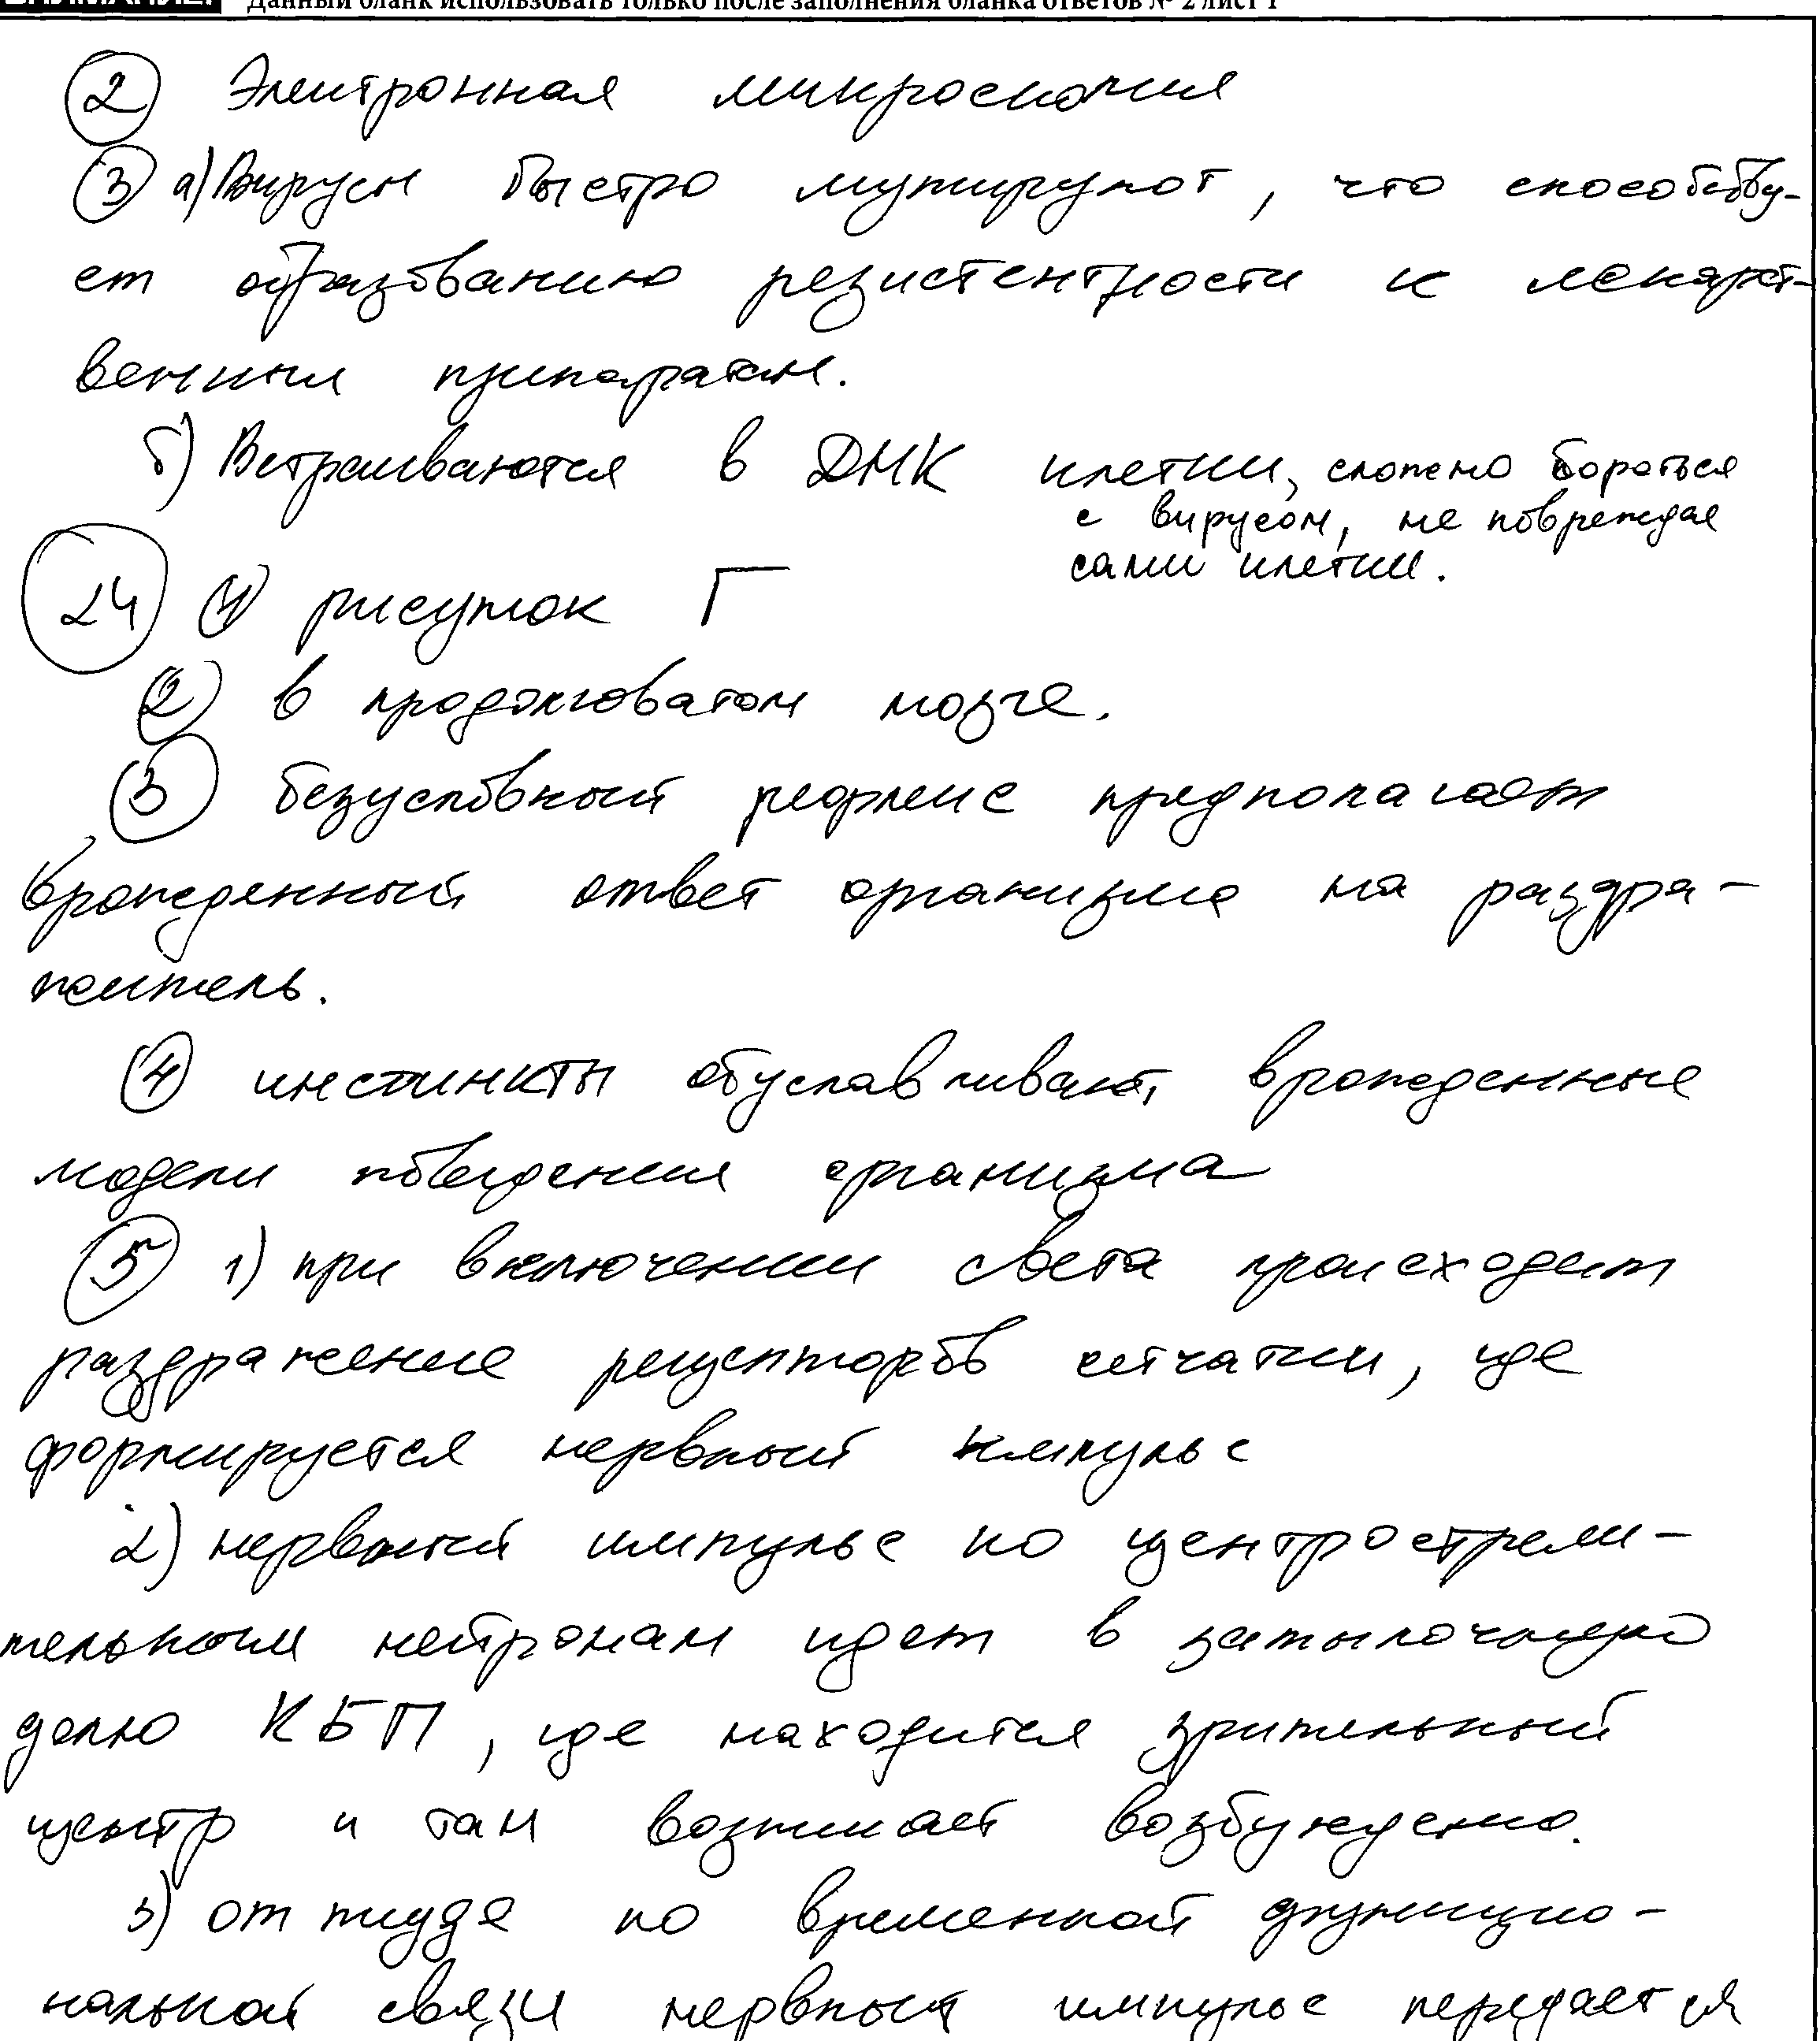 Данный бланк использовать только после заполнения бланка ответов № 2 лист 1
② Электронная микроскопия
③ а) Вирусы быстро мутируют, что способству-
ет образованию резистентности к лекарст-
венным препаратам.
б) Встраиваются в ДНК клетки, сложно бороться
с вирусом, не повреждая
сами клетки.
24 ① рисунок Г
② в продолговатом мозге.
③ безусловный рефлекс предполагает
врожденный ответ организма на раздра-
житель.
④ инстинкты обуславливают врожденные
модели поведения организма
⑤ 1) при включении света происходит
раздражение рецепторов сетчатки, где
формируется нервный импульс
2) нервный импульс по центростреми-
тельным нейронам идет в затылочную
долю КБП, где находится зрительный
центр и там возникает возбуждение.
3) от туда по временной функцио-
нальной связи нервный импульс передается